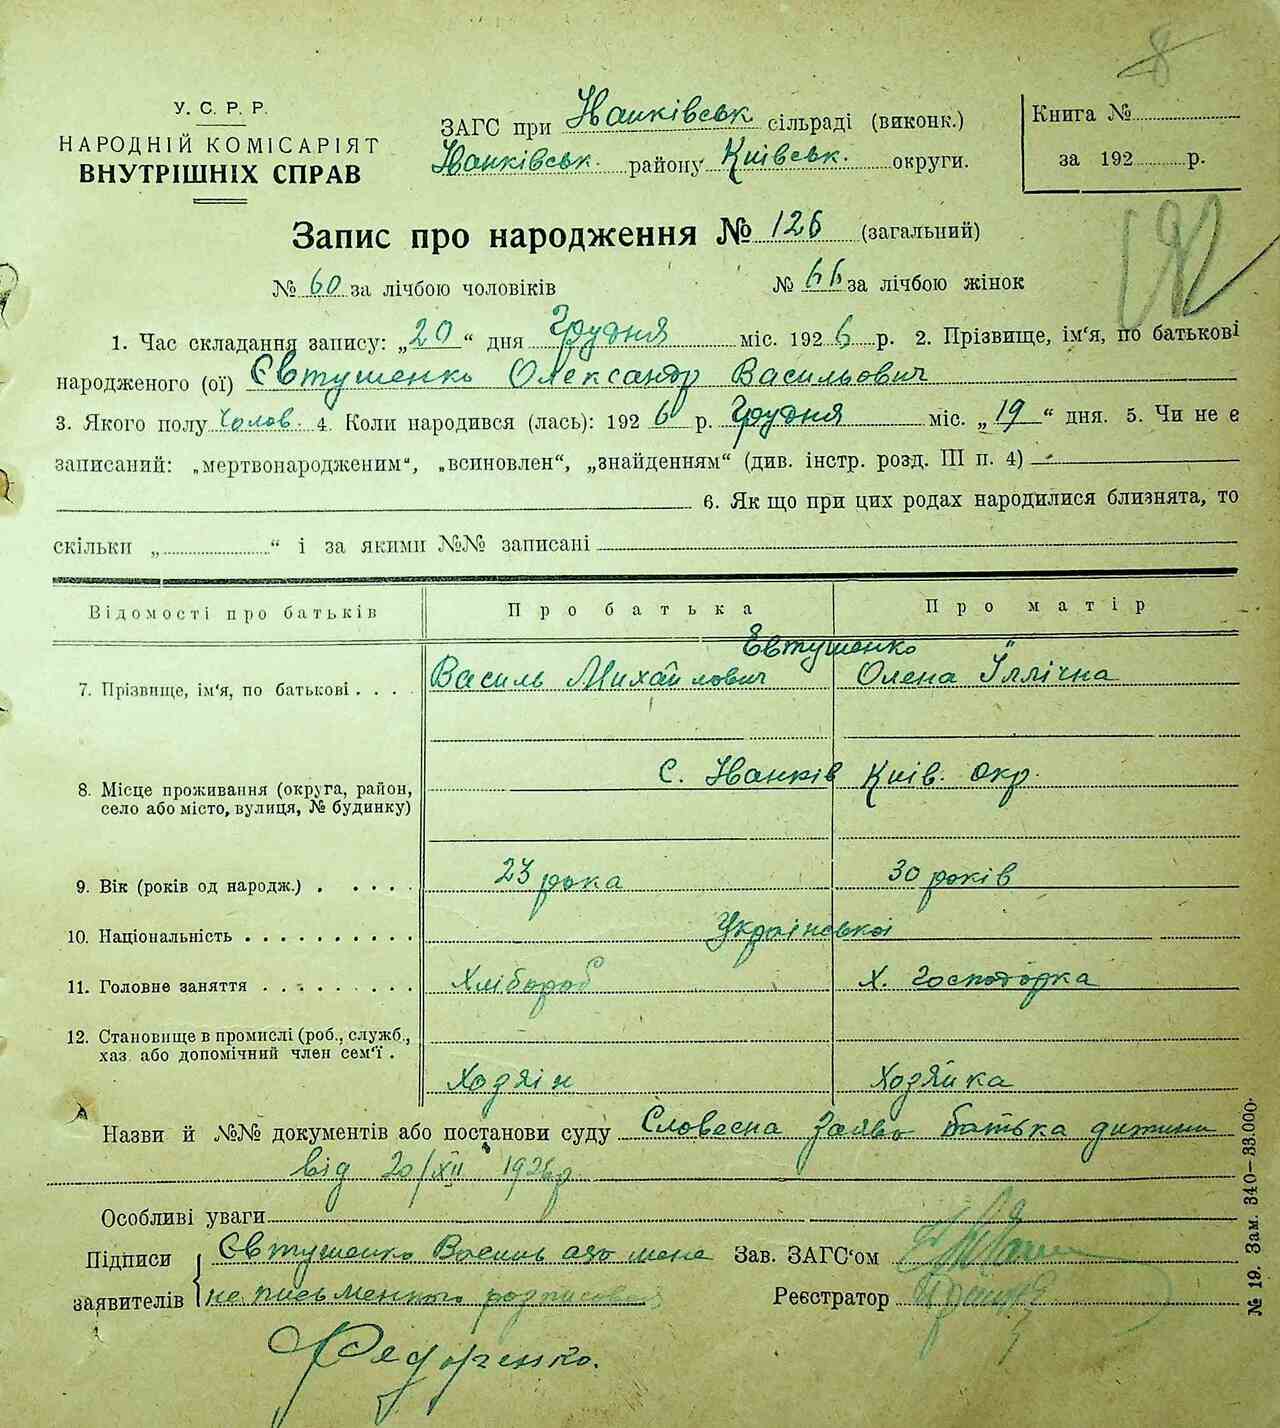 8
У. С. Р. Р.
НАРОДНІЙ КОМІСАРІЯТ
ВНУТРІШНІХ СПРАВ
ЗАГС при Іванківськ сільраді (виконк.)
Іванківськ. району Київськ. округи.
Книга №
за 192 р.
Запис про народження № 126 (загальний)
№ 60 за лічбою чоловіків № 66 за лічбою жінок
1. Час складання запису: „20“ дня Грудня міс. 1926 р. 2. Прізвище, ім'я, по батькові
народженого (ої) Євтушенко Олександр Васильович
3. Якого полу Чолов. 4. Коли народився (лась): 1926 р. Грудня міс. „19“ дня. 5. Чи не є
записаний: „мертвонародженим“, „всиновлен“, „знайденням“ (див. інстр. розд. III п. 4)
6. Як що при цих родах народилися близнята, то
скільки „ “ і за якими №№ записані
Відомості про батьків Про батька Про матір
Євтушенко
7. Прізвище, ім'я, по батькові . . . . Василь Михайлович Олена Іллічна
8. Місце проживання (округа, район, село або місто, вулиця, № будинку) с. Іванків Київ. окр.
9. Вік (років од народж.) . . . . . 23 рока 30 років
10. Національність . . . . . . . . . . Української
11. Головне заняття . . . . . . . . . Хлібороб Х. господорка
12. Становище в промислі (роб., служб., хаз. або допомічний член сем'ї . Хозяін Хозяйка
Назви й №№ документів або постанови суду Словесна заява батька дитини
від 20/XII 1926 р.
Особливі уваги
Підписи заявителів Євтушенко Василь а за мене
не письменного розписався
Зав. ЗАГС'ом
Реєстратор
Федорченко.
№ 19. Зам. 340—33.000.